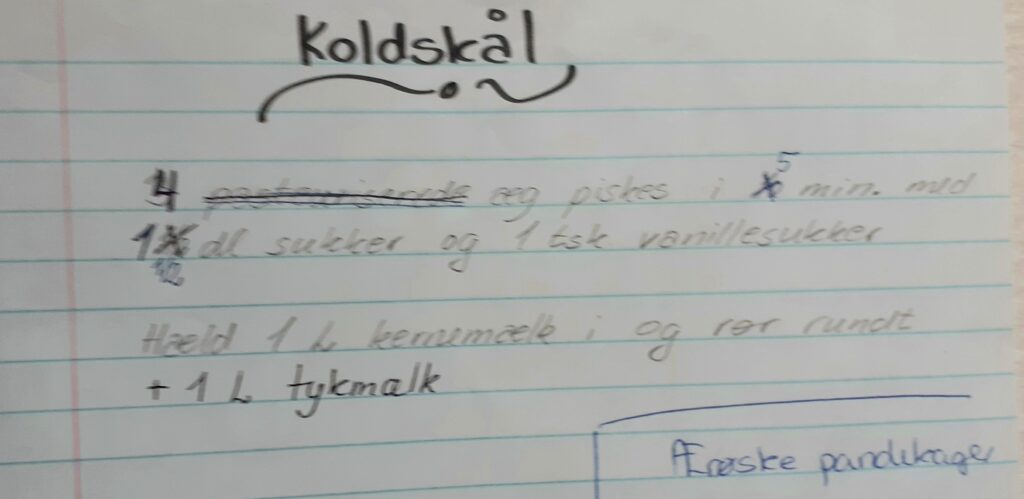 Koldskål
4 pasteuriserede æg piskes i 5 min. med
1 1/2 dl sukker og 1 tsk vanillesukker
Hæld 1 L kernemælk i og rør rundt
+ 1 L tykmalk
Ærøske pandekager